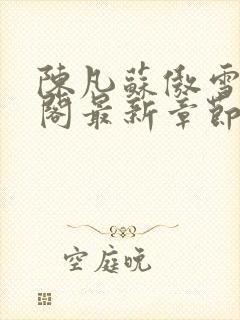 陳凡蘇傲雪
閣最新章節
空庭晚